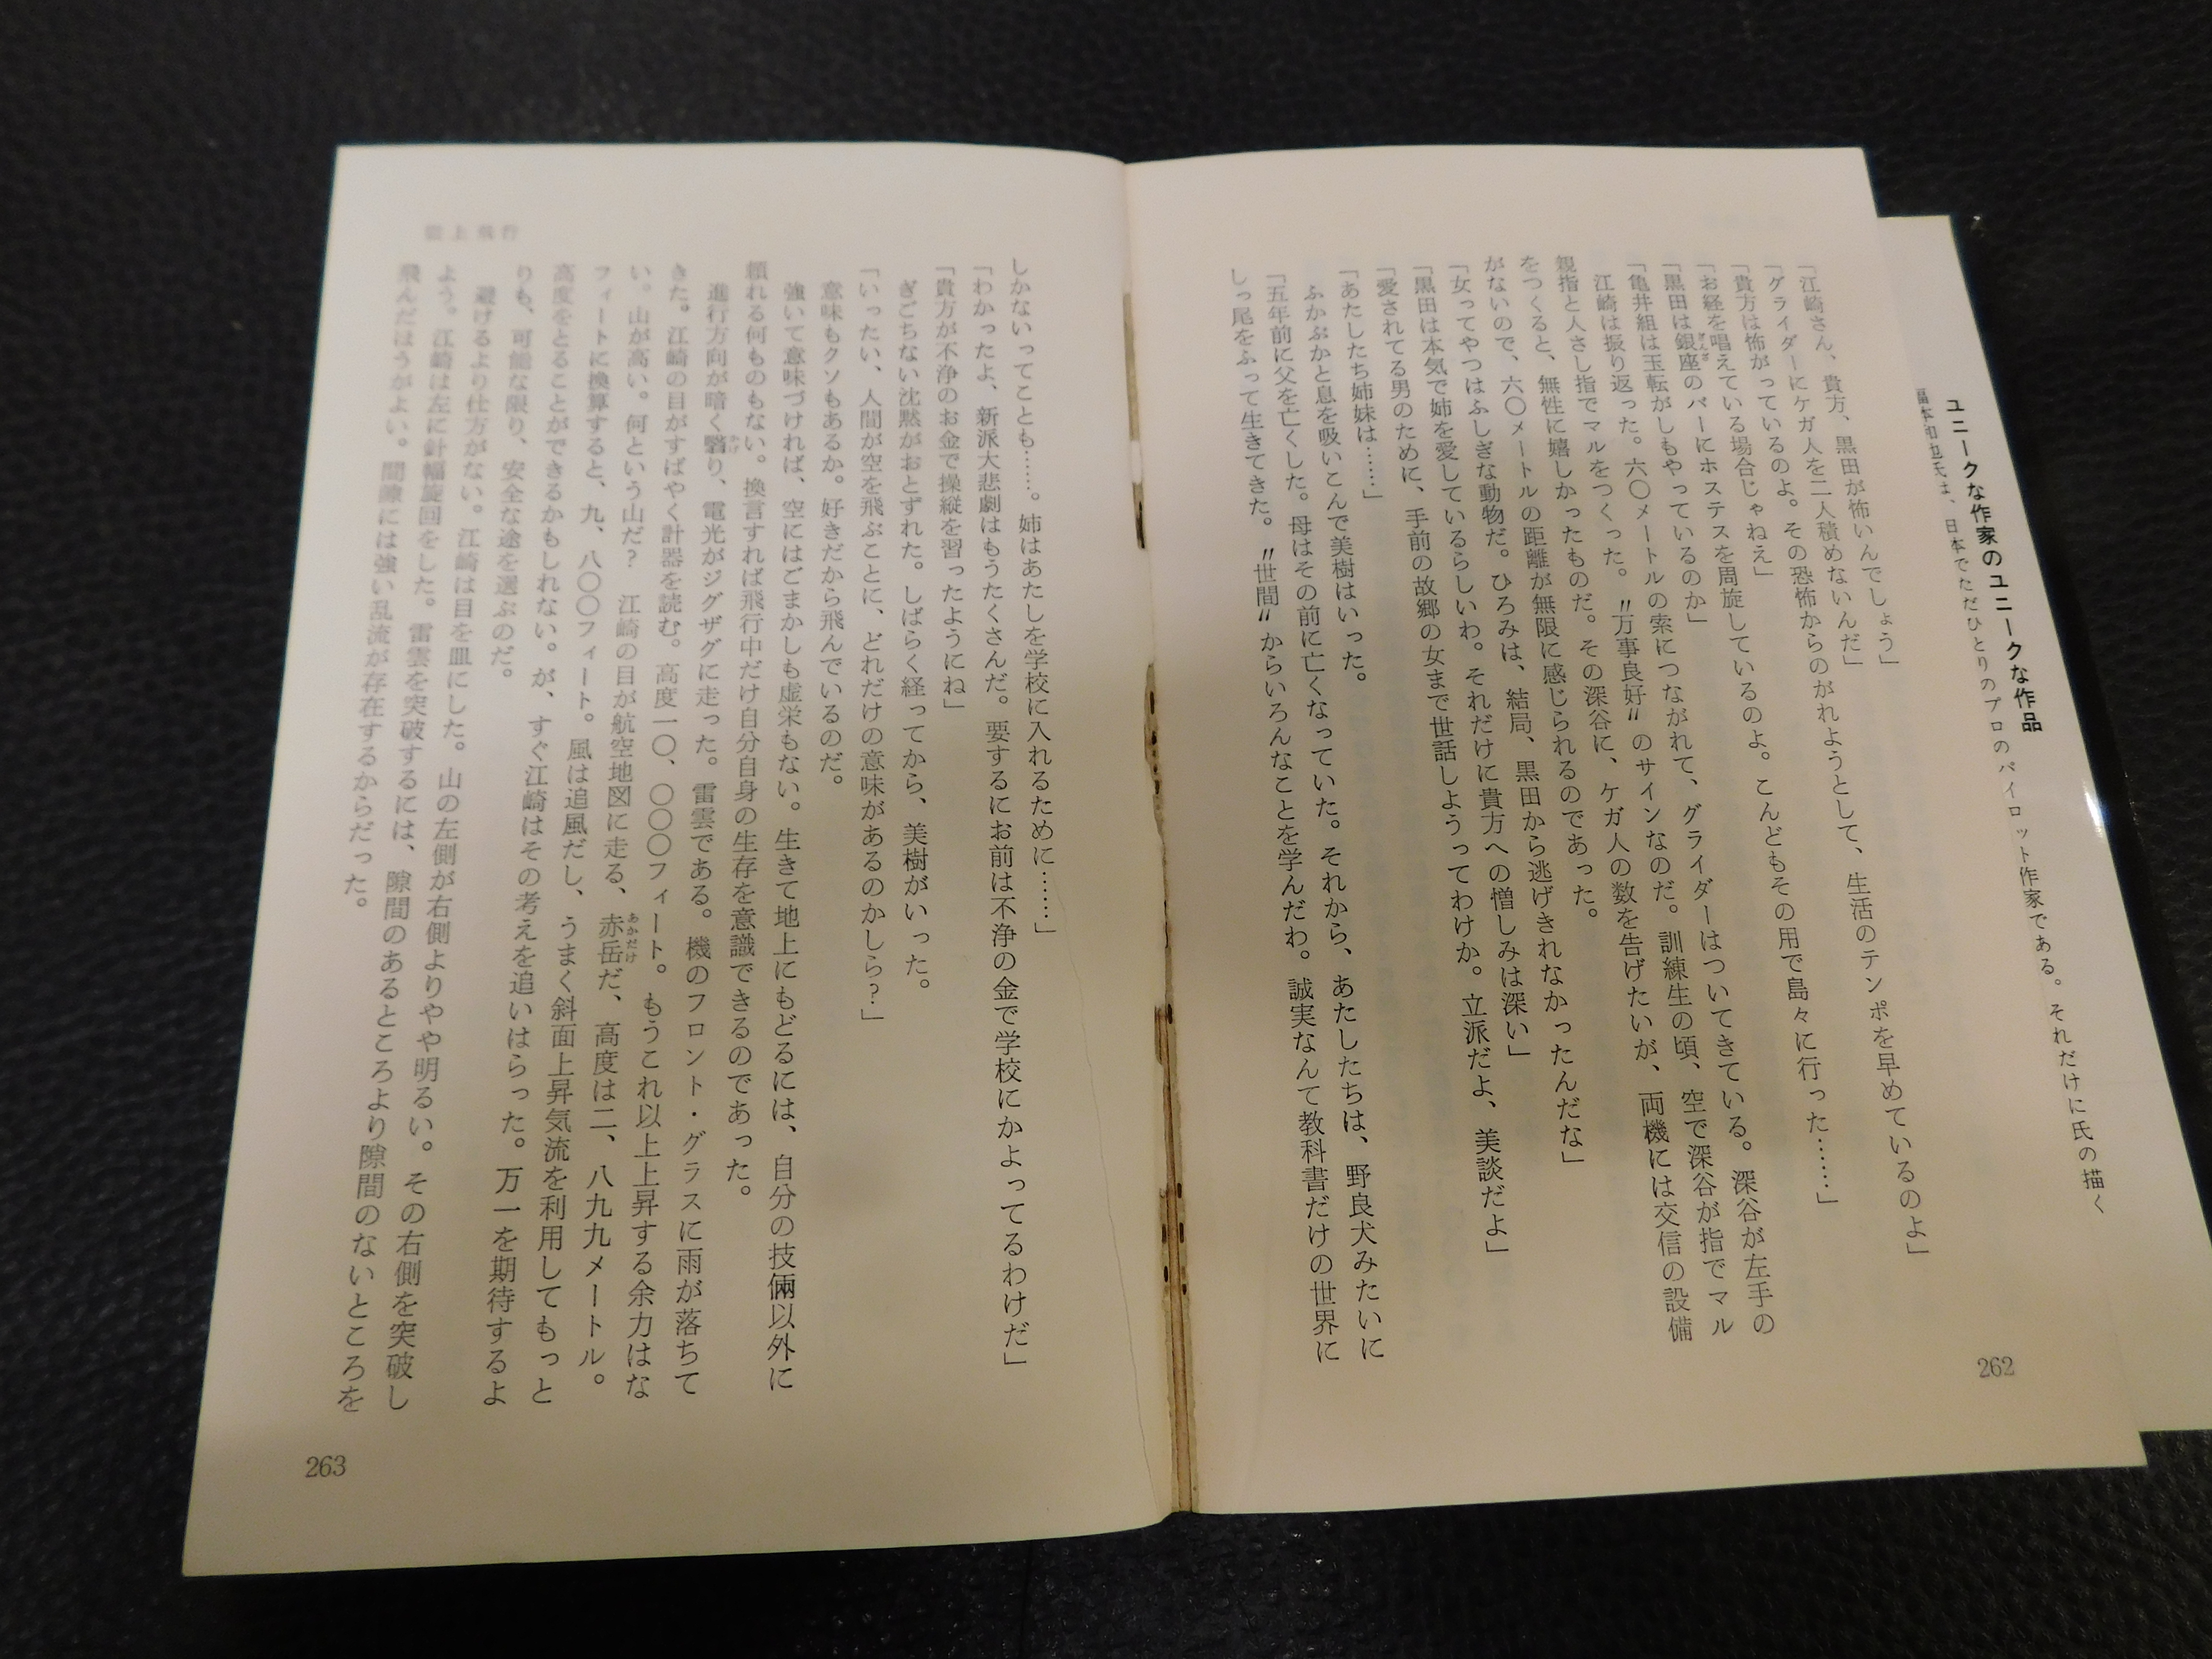 ユニークな作家のユニークな作品
福本和也氏は、日本でただひとりのプロのパイロット作家である。それだけに氏の描く
「江崎さん、貴方、黒田が怖いんでしょう」
「グライダーにケガ人を二人積めないんだ」
「貴方は怖がっているのよ。その恐怖からのがれようとして、生活のテンポを早めているのよ」
「お経を唱えている場合じゃねえ」
「黒田は銀座のバーにホステスを周旋しているのよ。こんどもその用で島々に行った……」
「亀井組は玉転がしもやっているのか」
江崎は振り返った。六〇メートルの索につながれて、グライダーはついてきている。深谷が左手の
親指と人さし指でマルをつくった。〝万事良好〟のサインなのだ。訓練生の頃、空で深谷が指でマル
をつくると、無性に嬉しかったものだ。その深谷に、ケガ人の数を告げたいが、両機には交信の設備
がないので、六〇メートルの距離が無限に感じられるのであった。
「女ってやつはふしぎな動物だ。ひろみは、結局、黒田から逃げきれなかったんだな」
「黒田は本気で姉を愛しているらしいわ。それだけに貴方への憎しみは深い」
「愛されてる男のために、手前の故郷の女まで世話しようってわけか。立派だよ、美談だよ」
「あたしたち姉妹は……」
ふかぶかと息を吸いこんで美樹はいった。
「五年前に父を亡くした。母はその前に亡くなっていた。それから、あたしたちは、野良犬みたいに
しっ尾をふって生きてきた。〝世間〟からいろんなことを学んだわ。誠実なんて教科書だけの世界に
262
しかないってことも……。姉はあたしを学校に入れるために……」
「わかったよ、新派大悲劇はもうたくさんだ。要するにお前は不浄の金で学校にかよってるわけだ」
「貴方が不浄のお金で操縦を習ったようにね」
ぎごちない沈黙がおとずれた。しばらく経ってから、美樹がいった。
「いったい、人間が空を飛ぶことに、どれだけの意味があるのかしら？」
意味もクソもあるか。好きだから飛んでいるのだ。
強いて意味づければ、空にはごまかしも虚栄もない。生きて地上にもどるには、自分の技倆以外に
頼れる何ものもない。換言すれば飛行中だけ自分自身の生存を意識できるのであった。
進行方向が暗く翳り、電光がジグザグに走った。雷雲である。機のフロント・グラスに雨が落ちて
きた。江崎の目がすばやく計器を読む。高度一〇、〇〇〇フィート。もうこれ以上上昇する余力はな
い。山が高い。何という山だ？　江崎の目が航空地図に走る、赤岳だ、高度は二、八九九メートル。
フィートに換算すると、九、八〇〇フィート。風は追風だし、うまく斜面上昇気流を利用してもっと
高度をとることができるかもしれない。が、すぐ江崎はその考えを追いはらった。万一を期待するよ
りも、可能な限り、安全な途を選ぶのだ。
避けるより仕方がない。江崎は目を皿にした。山の左側が右側よりやや明るい。その右側を突破し
よう。江崎は左に針幅旋回をした。雷雲を突破するには、隙間のあるところより隙間のないところを
飛んだほうがよい。間隙には強い乱流が存在するからだった。
雲上飛行
263